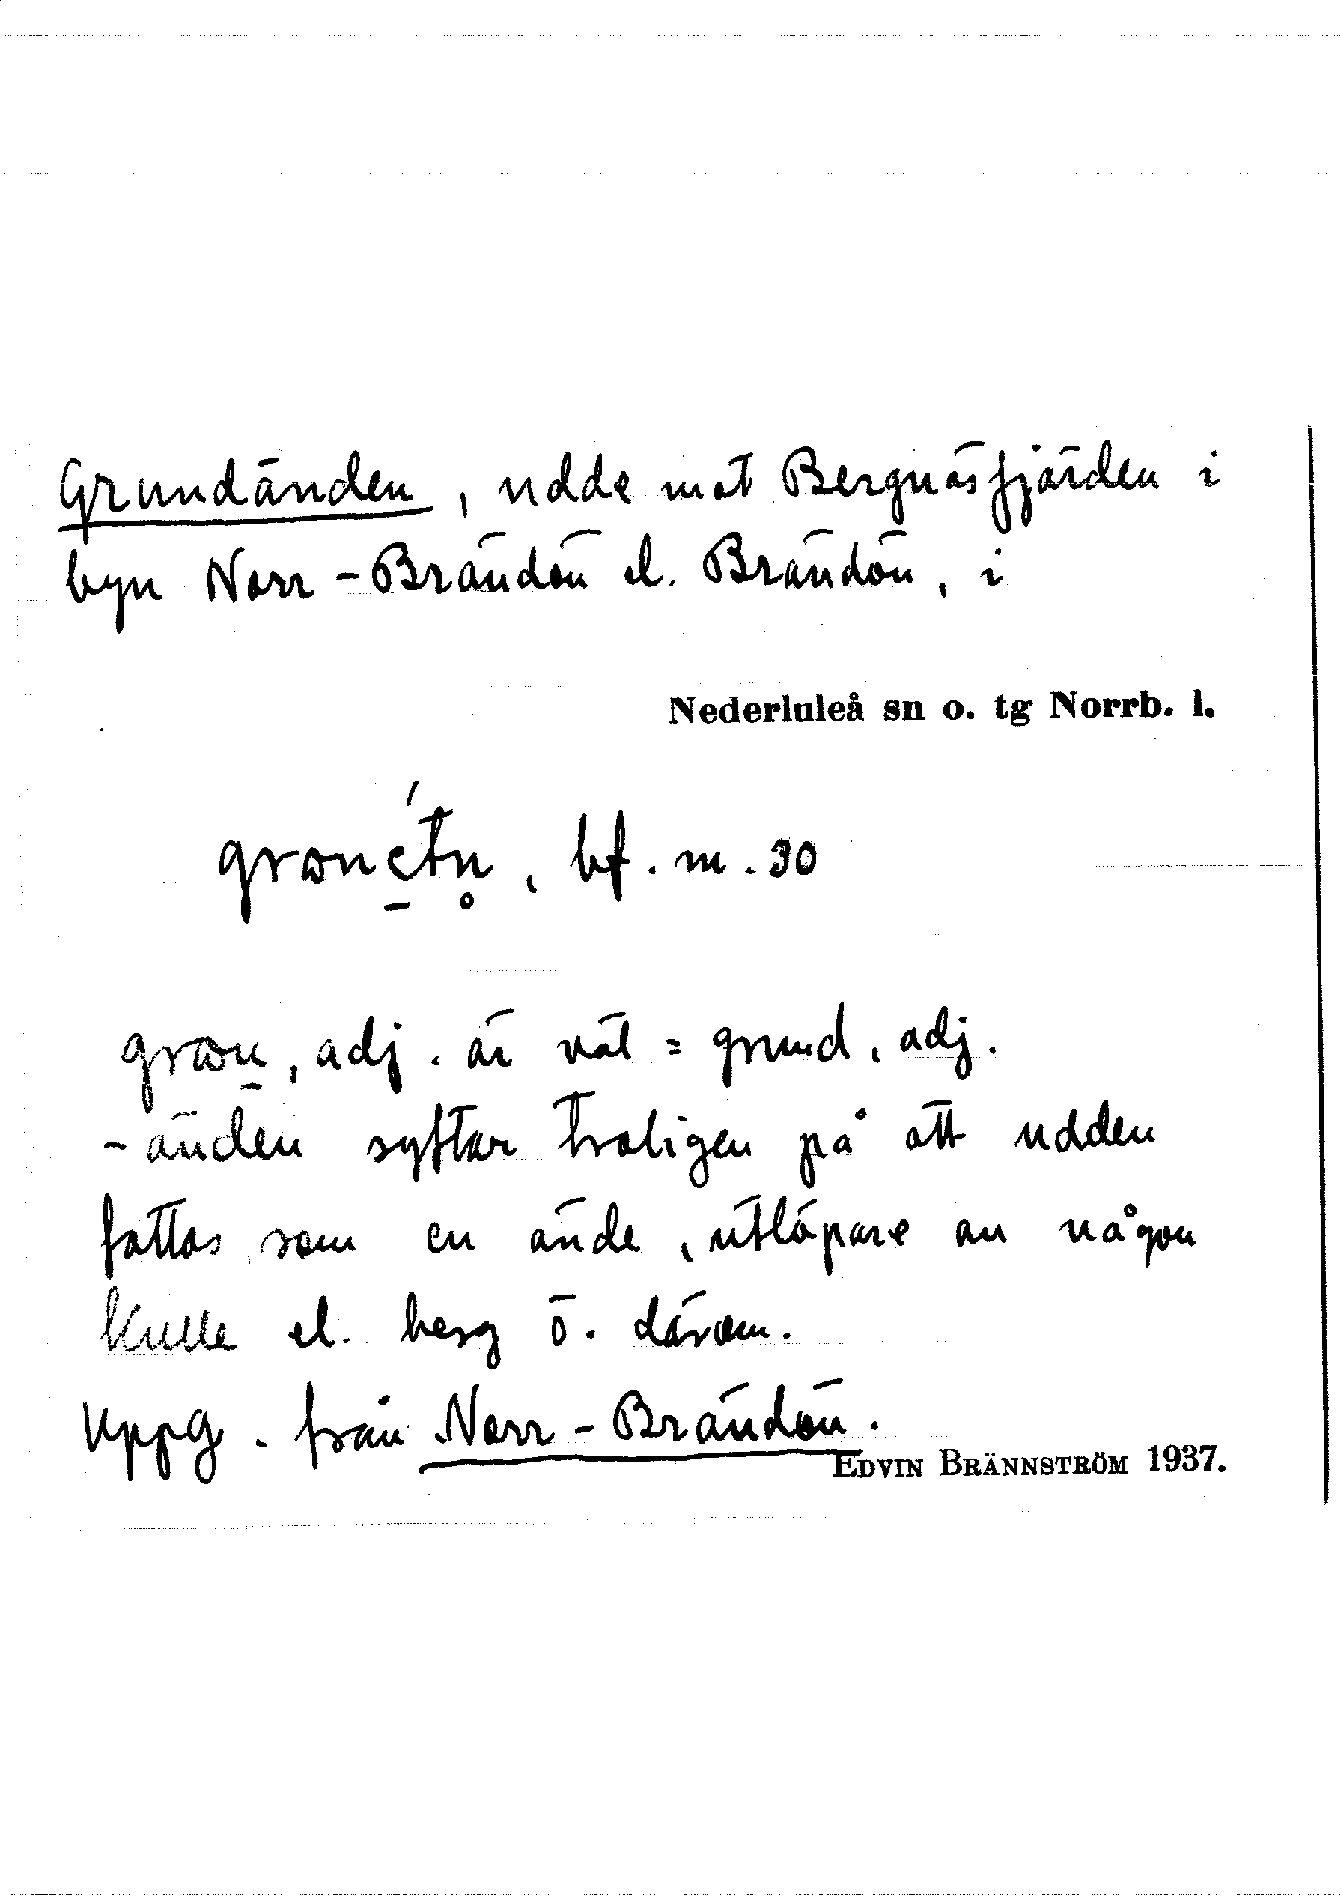 Grundänden, udde mot Bergnäsfjärden i
byn Norr-Brändön el. Brändön, i
Nederluleå sn o. tg Norrb. l.
, bf. m. 30
, adj. är väl = grund, adj.
-änden syftar troligen på att udden
fattas som en ände, utlöpare av någon
kulle el. berg ö. därom.
Uppg. från Norr-Brändön.
EDVIN BRÄNNSTRÖM 1937.